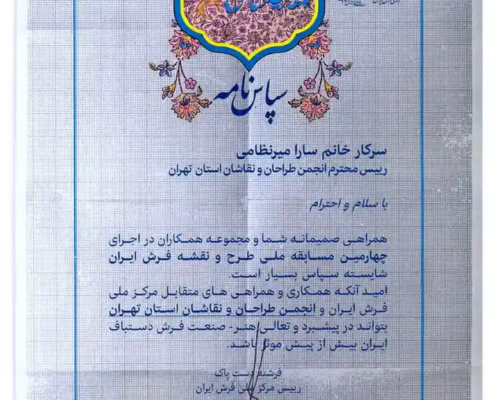 سپاس نامه
سرکار خانم سارا میرنظامی
رییس محترم انجمن طراحان و نقاشان استان تهران
با سلام و احترام
همراهی صمیمانه شما و مجموعه همکاران در اجرای
چهارمین مسابقه ملی طرح و نقشه فرش ایران
شایسته سپاس بسیار است.
امید آنکه همکاری و همراهی های متقابل مرکز ملی
فرش ایران و انجمن طراحان و نقاشان استان تهران
بتواند در پیشبرد و تعالی هنر- صنعت فرش دستباف
ایران بیش از پیش موثر باشد.
فرشته دست پاک
رییس مرکز ملی فرش ایران